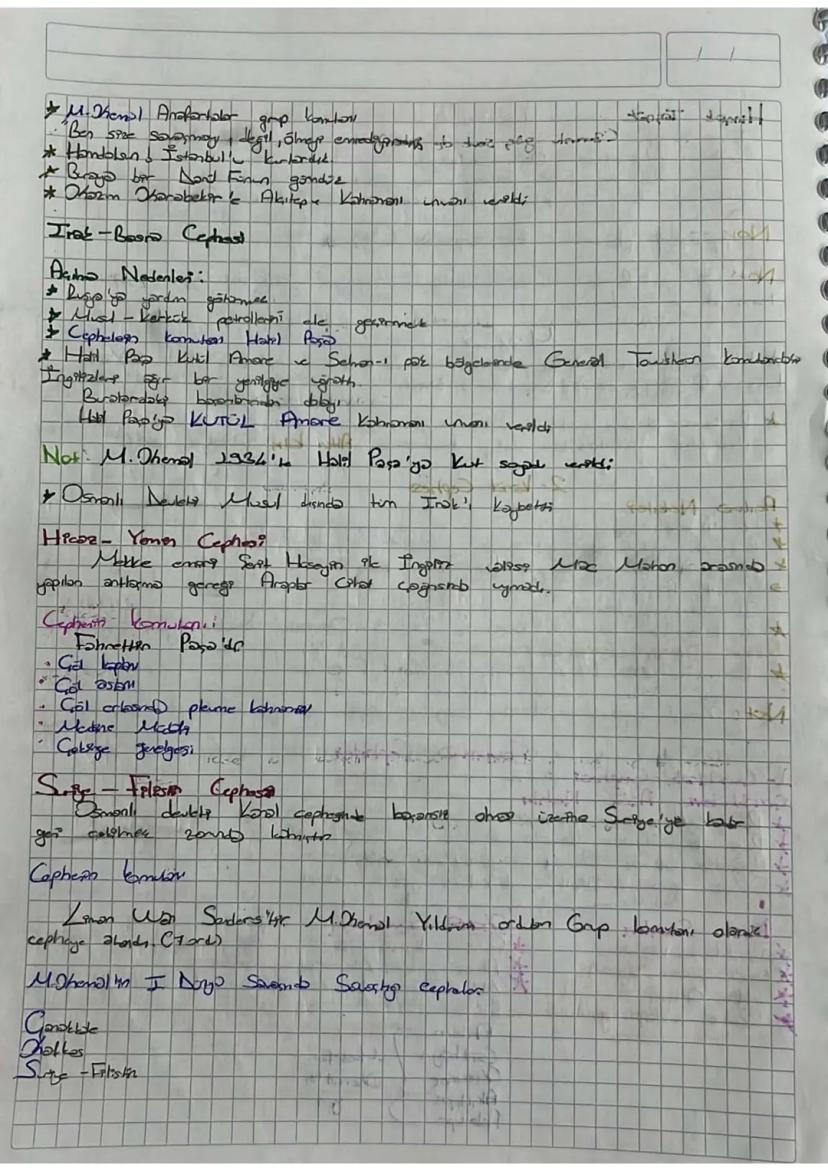 * M. Kemal Anafartalar grup komutanı
"Ben size savaşmayı değil, ölmeyi emrediyorum
* Hamdolsun İstanbul'u kurtardık
* Buraya bir Darul Fünun gömdük
* Kazım Karabekir'e Alçıtepe Kahramanı unvanı verildi
Irak - Basra Cephesi
Açılma Nedenleri:
* Rusya'ya yardım götürmek
* Musul - Kerkük petrollerini ele geçirmek
* Cephelerin komutanı Halil Paşa
* Halil Paşa Kutül Amare ve Selman-ı pak bölgelerinde General Townshend komutanlığında
İngilizlere ağır bir yenilgiye uğrattı.
Buralardaki başarılarından dolayı
Halil Paşa'ya KUTÜL Amare Kahramanı unvanı verildi
Not: M. Kemal 1934'te Halil Paşa'ya Kut soyadı verildi
* Osmanlı Devleti Musul dışında tüm Irak'ı kaybetti
Hicaz - Yemen Cephesi
Mekke emiri Şerif Hüseyin ile İngiliz valisi Mac Mahon arasında
yapılan antlaşma gereği Araplar Cihat çağrısına uymadı.
Cephenin komutanı:
Fahrettin Paşa'dır
• Çöl kaplanı
• Çöl aslanı
• Çöl ortasında plevne kahramanı
• Medine Müdafii
• Çekirge genelgesi
Suriye - Filistin Cephesi
Osmanlı devleti Kanal cephesinde başarısız olması üzerine Suriye'ye kadar
geri çekilmek zorunda kalmıştır
Cephenin komutanı
Liman Von Sanders'tir M. Kemal Yıldırım orduları Grup komutanı olarak
cepheye atandı. (7. ordu)
M. Kemal'in I Dünya Savaşında Savaştığı cepheler
Çanakkale
Kafkas
Suriye - Filistin